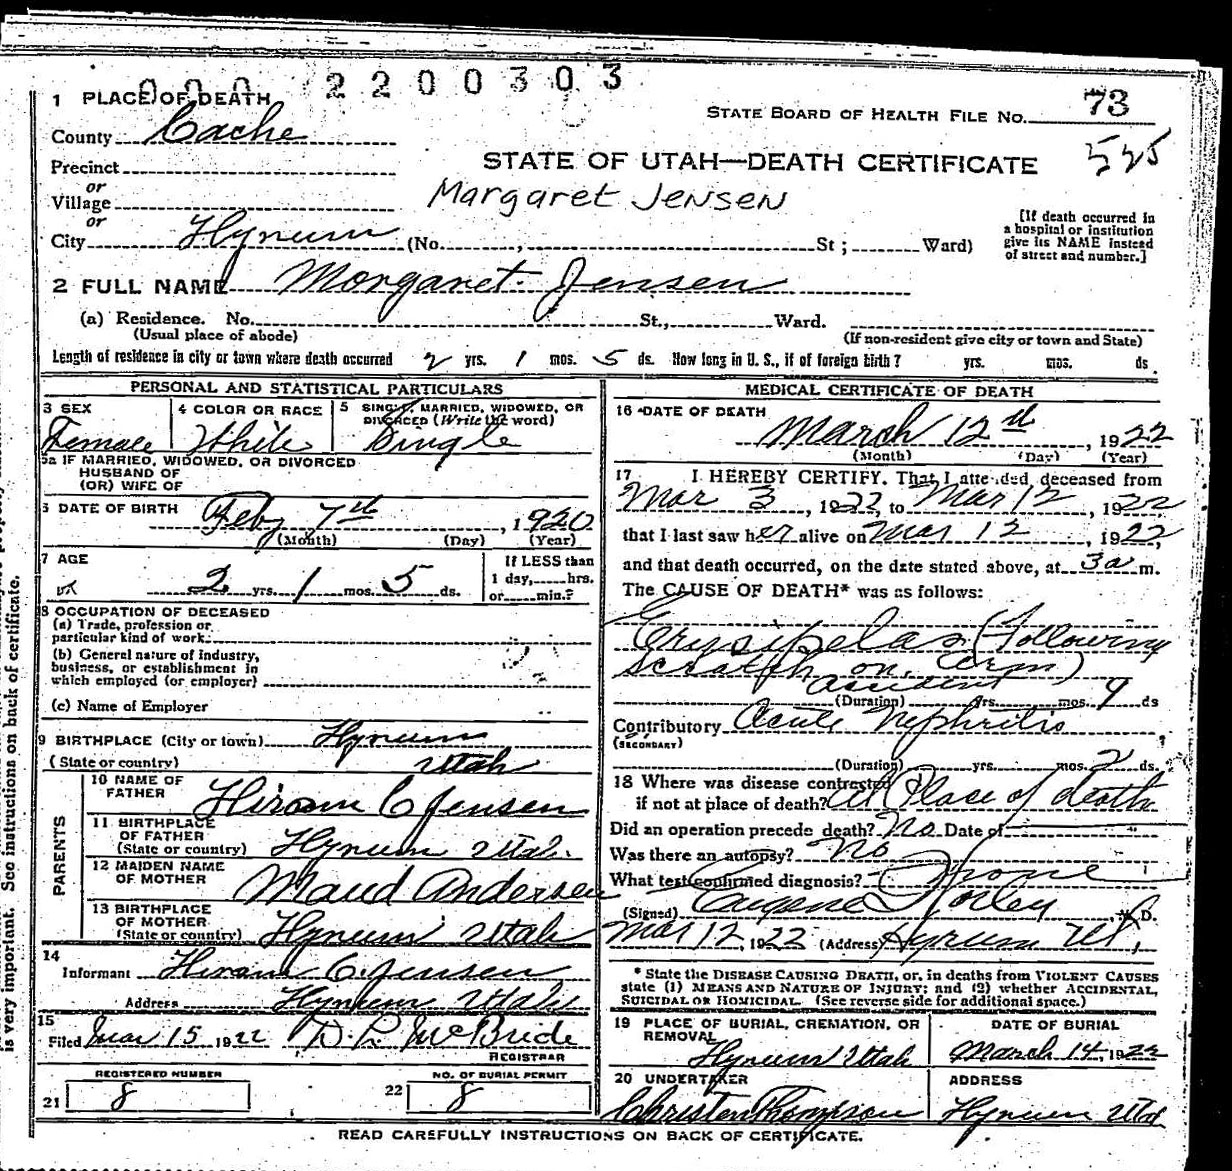 000 2200303
1 PLACE OF DEATH
STATE BOARD OF HEALTH FILE NO. 73
County Cache
525
STATE OF UTAH—DEATH CERTIFICATE
Precinct
or
Village
Margaret Jensen
or
City Hyrum (No. , St ; Ward)
[If death occurred in
a hospital or institution
give its NAME instead
of street and number.]
2 FULL NAME Morgaret Jensen
(a) Residence. No. St., Ward.
(Usual place of abode)
(If non-resident give city or town and State)
Length of residence in city or town where death occurred 2 yrs. 1 mos. 5 ds. How long in U. S., if of foreign birth? yrs. mos. ds.
PERSONAL AND STATISTICAL PARTICULARS
3 SEX
Female
4 COLOR OR RACE
White
5 SINGLE, MARRIED, WIDOWED, OR
DIVORCED (Write the word)
Single
5a IF MARRIED, WIDOWED, OR DIVORCED
HUSBAND OF
(OR) WIFE OF
6 DATE OF BIRTH Feby 7th , 1920
(Month) (Day) (Year)
7 AGE
2 yrs. 1 mos. 5 ds.
If LESS than
1 day, hrs.
or min.?
8 OCCUPATION OF DECEASED
(a) Trade, profession or
particular kind of work.
(b) General nature of industry,
business, or establishment in
which employed (or employer)
(c) Name of Employer
9 BIRTHPLACE (City or town) Hyrum
(State or country) Utah
PARENTS
10 NAME OF
FATHER Hiram C Jensen
11 BIRTHPLACE
OF FATHER
(State or country) Hyrum Utah.
12 MAIDEN NAME
OF MOTHER Maud Andersen
13 BIRTHPLACE
OF MOTHER
(State or country) Hyrum Utah
14
Informant Hiram C. Jensen
Address Hyrum Utah
15
Filed Mar 15 1922 D. L. McBride
REGISTRAR
REGISTERED NUMBER
21 8
NO. OF BURIAL PERMIT
22 8
MEDICAL CERTIFICATE OF DEATH
16 DATE OF DEATH
March 12th , 1922
(Month) (Day) (Year)
17 I HEREBY CERTIFY. That I attended deceased from
Mar 3 , 1922, to Mar 12 , 1922
that I last saw her alive on Mar 12 , 1922,
and that death occurred, on the date stated above, at 3a m.
The CAUSE OF DEATH* was as follows:
Erysipelas (following
scratch on arm)
accident
(Duration) yrs. mos. 9 ds
Contributory Acute Nephritis
(SECONDARY)
(Duration) yrs. mos. 2 ds.
18 Where was disease contracted
if not at place of death? At Place of death
Did an operation precede death? No Date of
Was there an autopsy? No
What test confirmed diagnosis? None
(Signed) Eugene Worley , M. D.
Mar 12, 1922 (Address) Hyrum Ut,
* State the DISEASE CAUSING DEATH, or, in deaths from VIOLENT CAUSES
state (1) MEANS AND NATURE OF INJURY; and (2) whether ACCIDENTAL,
SUICIDAL OR HOMICIDAL. (See reverse side for additional space.)
19 PLACE OF BURIAL, CREMATION, OR
REMOVAL
Hyrum Utah
DATE OF BURIAL
March 14, 1922
20 UNDERTAKER
Christen Thompson
ADDRESS
Hyrum Utah
READ CAREFULLY INSTRUCTIONS ON BACK OF CERTIFICATE.
is very important. See instructions on back of certificate.